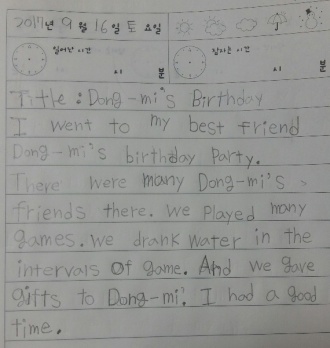 2017년 9월 16일 토요일
일어난 시간
시 분
잠자는 시간
시 분
Title : Dong-mi's Birthday
I went to my best friend
Dong-mi's birthday Party.
There were many Dong-mi's
friends there. We Played many
games. We drank water in the
intervals of game. And we gave
gifts to Dong-mi. I had a good
time.